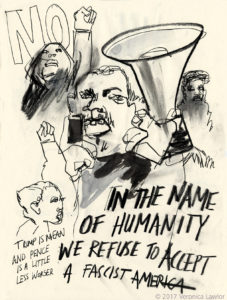 NO
TRUMP IS MEAN
AND PENCE
IS A LITTLE
LESS WORSER
IN THE NAME
OF HUMANITY
WE REFUSE TO ACCEPT
A FASCIST AMERICA
© 2017 Veronica Lawlor